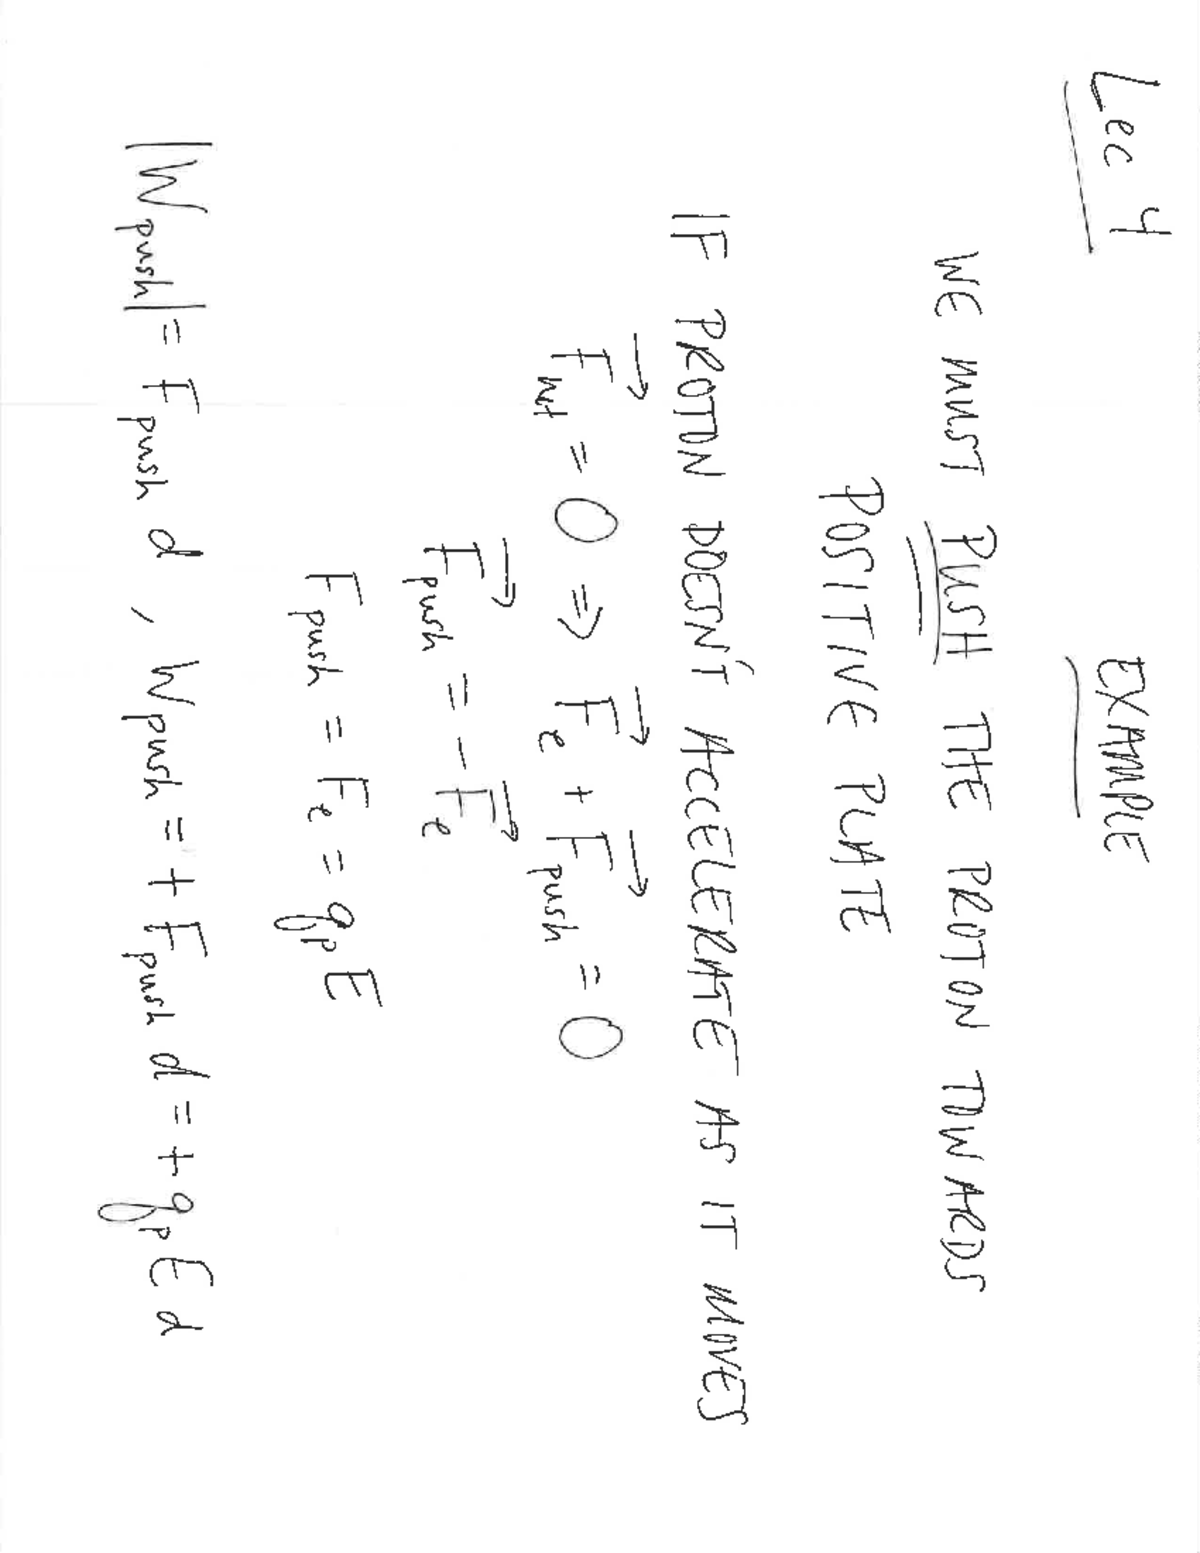 Lec 4
EXAMPLE
WE MUST PUSH THE PROTON TOWARDS
POSITIVE PLATE
IF PROTON DOESN'T ACCELERATE AS IT MOVES
F⃗net = 0 ⇒ F⃗e + F⃗push = 0
F⃗push = - F⃗e
Fpush = Fe = qpE
|Wpush| = Fpush d , Wpush = + Fpush d = + qpE d